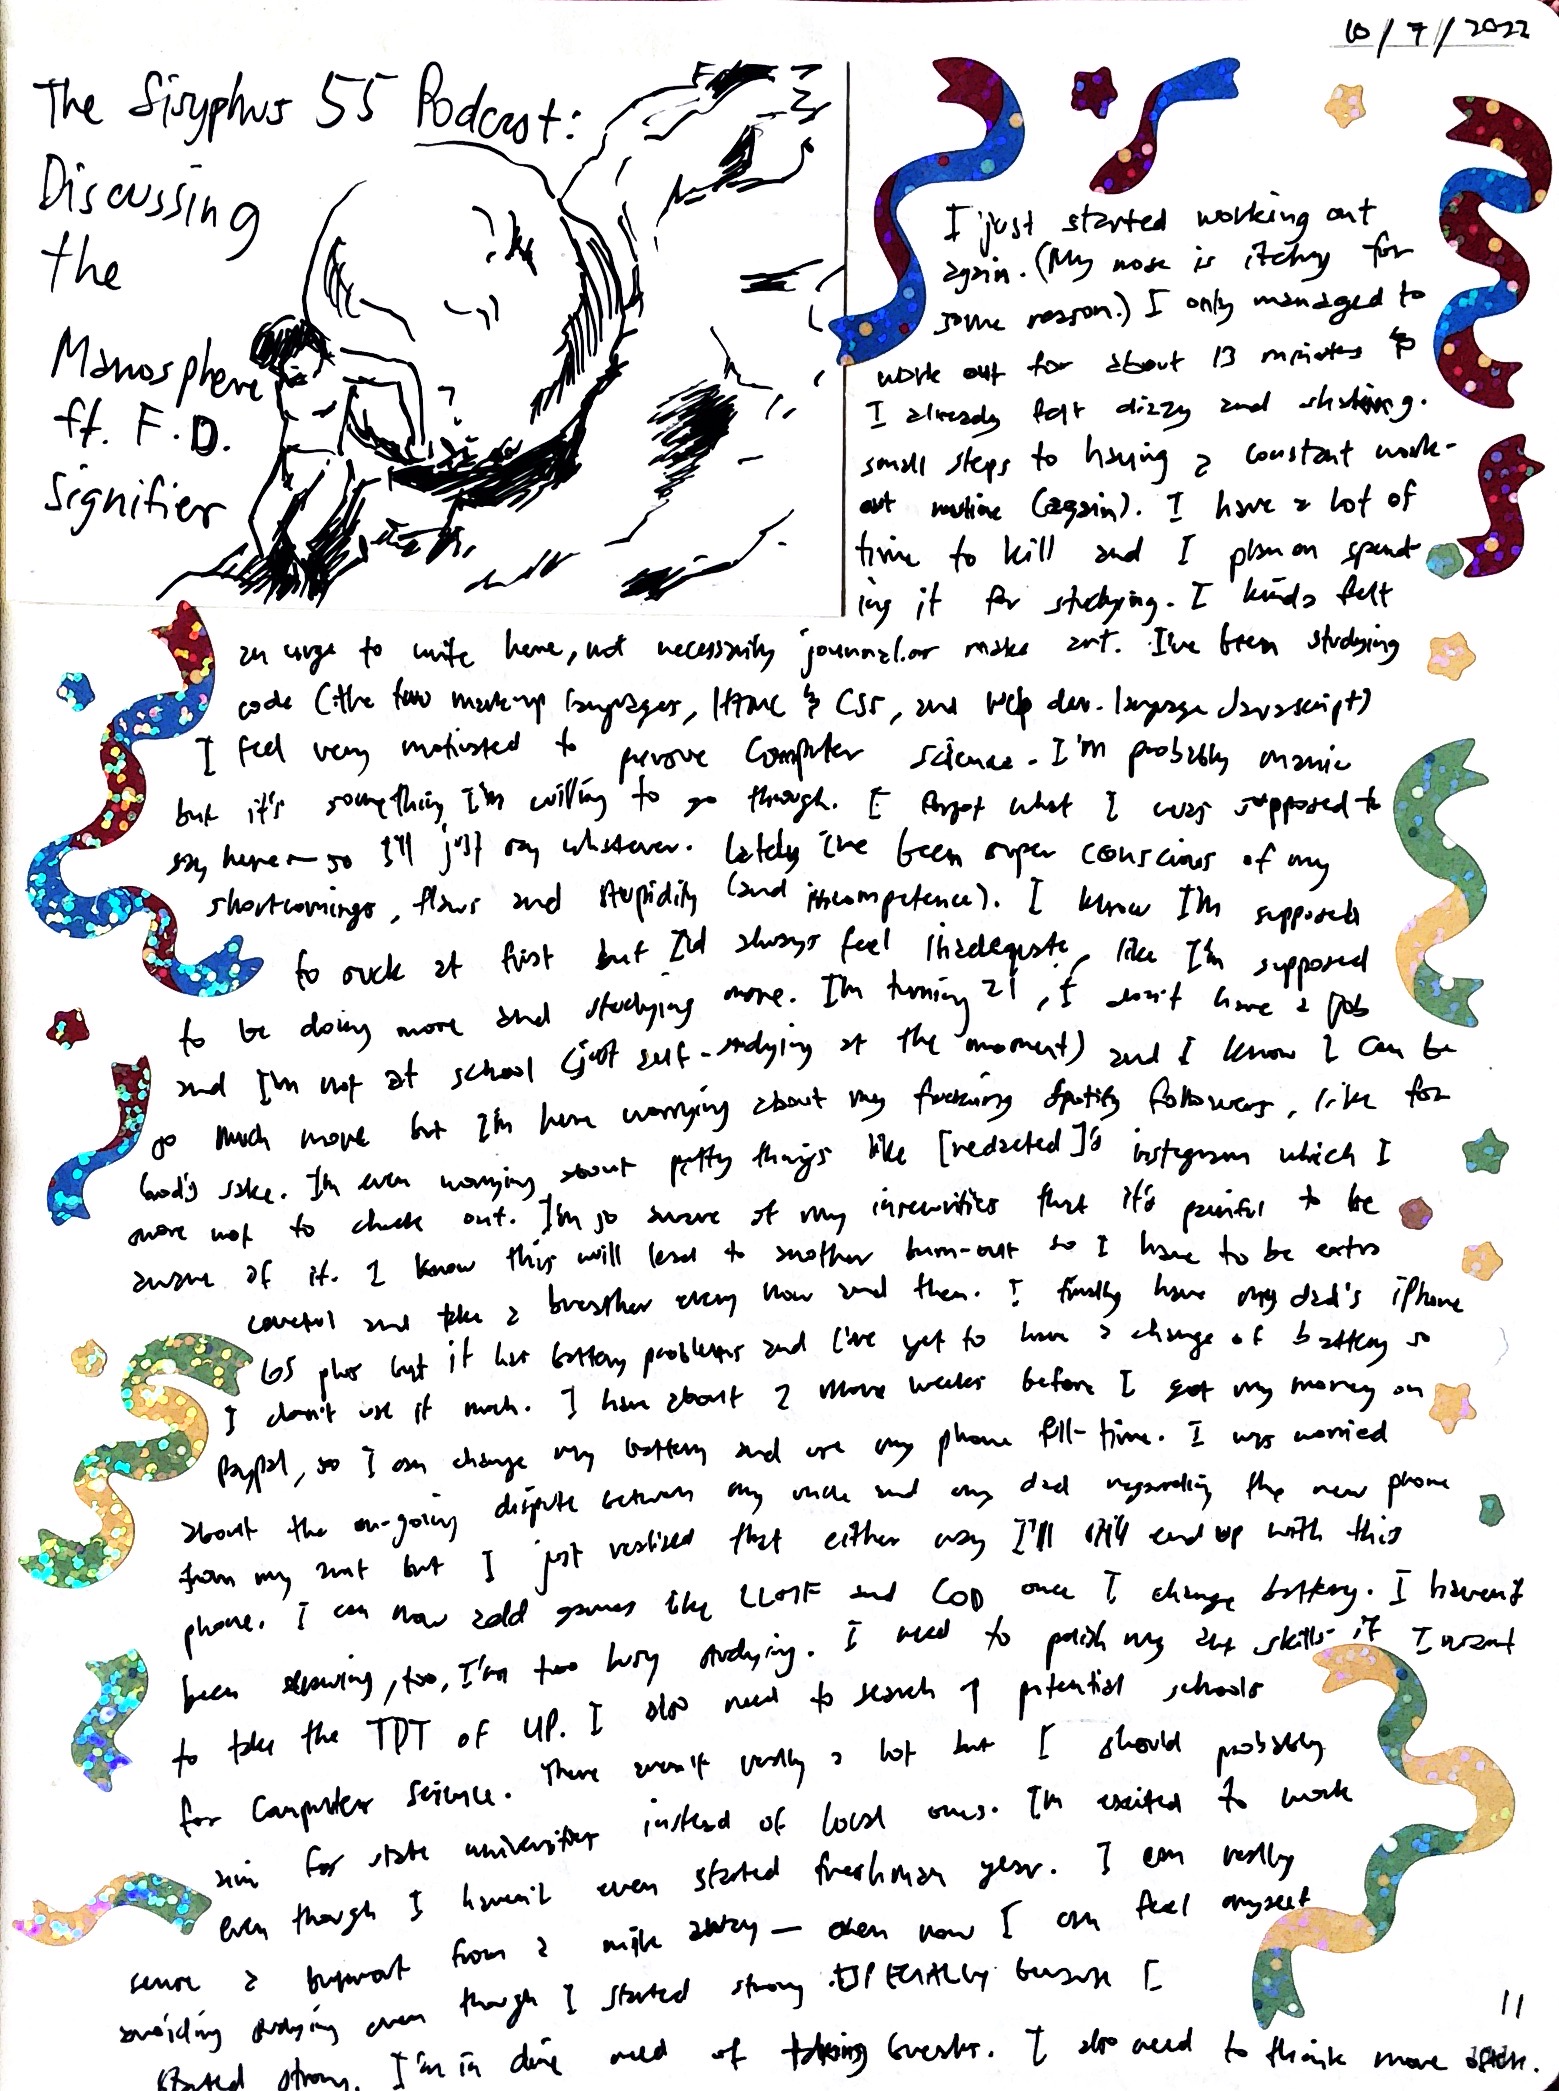 10/7/2022
The Sisyphus 55 Podcast:
Discussing
the
Manosphere
ft. F.D.
Signifier
I just started working out
again. (My nose is itchy for
some reason.) I only managed to
work out for about 13 minutes &
I already felt dizzy and shaking.
small steps to having a constant work-
out routine (again). I have a lot of
time to kill and I plan on spend-
ing it for studying. I kinda felt
an urge to write here, not necessarily journal or make art. I've been studying
code (the two mark-up languages, HTML & CSS, and web dev. language Javascript)
I feel very motivated to pursue Computer science. I'm probably manic
but it's something I'm willing to go through. I forgot what I was supposed to
say here — so I'll just say whatever. Lately I've been super conscious of my
shortcomings, flaws and stupidity (and incompetence). I know I'm supposed
to suck at first but I'd always feel inadequate, like I'm supposed
to be doing more and studying more. I'm turning 21, I don't have a job
and I'm not at school (just self-studying at the moment) and I know I can be
so much more but I'm here worrying about my fucking Spotify followers, like for
God's sake. I'm even worrying about petty things like [redacted]'s instagram which I
swore not to check out. I'm so aware of my insecurities that it's painful to be
aware of it. I know this will lead to another burn-out so I have to be extra
careful and take a breather every now and then. I finally have my dad's iPhone
6S plus but it has battery problems and I've yet to have a change of battery so
I don't use it much. I have about 2 more weeks before I get my money on
Paypal, so I can change my battery and use my phone full-time. I was worried
about the on-going dispute between my uncle and my dad regarding the new phone
from my aunt but I just realised that either way I'll still end up with this
phone. I can now add games like LLOTF and COD once I change battery. I haven't
been drawing, too, I'm too busy studying. I need to polish my art skills if I want
to take the TDT of UP. I also need to search of potential schools
for Computer Science. There aren't really a lot but I should probably
aim for state universities instead of local ones. I'm excited to work
even though I haven't even started freshman year. I can really
sense a burnout from a mile away — even now I can feel myself
avoiding studying even though I started strong. ESPECIALLY because I
started strong. I'm in dire need of taking breaks. I also need to think more often.
11